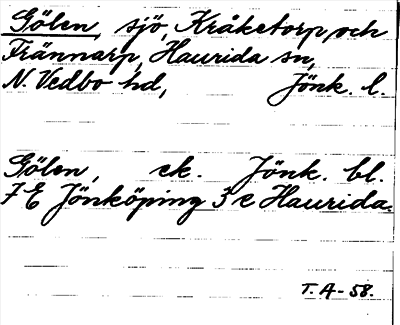 Gölen, sjö, Kråketorp och
Frännarp, Haurida sn,
N. Vedbo hd, Jönk. l.
Gölen, ek. Jönk. bl.
7 E Jönköping 3 e Haurida.
T. A-58.